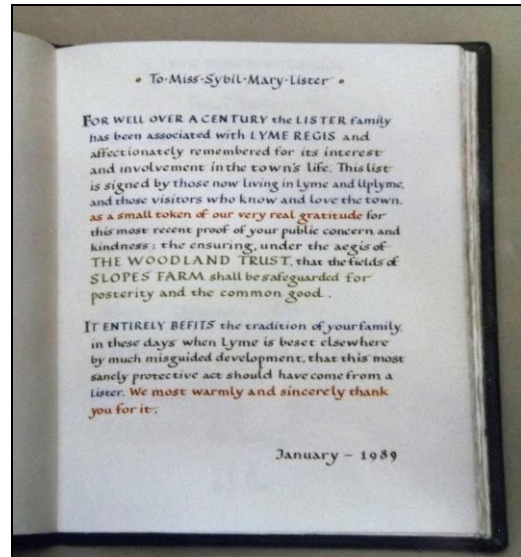 • To·Miss·Sybil·Mary·Lister •
FOR WELL OVER A CENTURY the LISTER family
has been associated with LYME REGIS and
affectionately remembered for its interest
and involvement in the town's life. This list
is signed by those now living in Lyme and Uplyme,
and those visitors who know and love the town,
as a small token of our very real gratitude for
this most recent proof of your public concern and
kindness: the ensuring, under the aegis of
THE WOODLAND TRUST, that the fields of
SLOPES FARM shall be safeguarded for
posterity and the common good.
IT ENTIRELY BEFITS the tradition of your family,
in these days when Lyme is beset elsewhere
by much misguided development, that this most
sanely protective act should have come from a
Lister. We most warmly and sincerely thank
you for it.
January – 1989